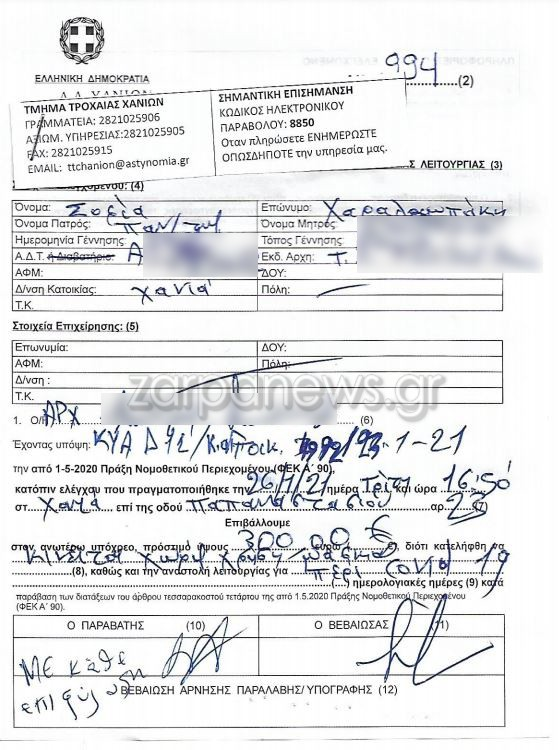 994
(2)
ΕΛΛΗΝΙΚΗ ΔΗΜΟΚΡΑΤΙΑ
ΤΜΗΜΑ ΤΡΟΧΑΙΑΣ ΧΑΝΙΩΝ
ΓΡΑΜΜΑΤΕΙΑ: 2821025906
ΑΞΙΩΜ. ΥΠΗΡΕΣΙΑΣ:2821025905
FAX: 2821025915
EMAIL: ttchanion@astynomia.gr
ΣΗΜΑΝΤΙΚΗ ΕΠΙΣΗΜΑΝΣΗ
ΚΩΔΙΚΟΣ ΗΛΕΚΤΡΟΝΙΚΟΥ
ΠΑΡΑΒΟΛΟΥ: 8850
Οταν πληρώσετε ΕΝΗΜΕΡΩΣΤΕ
ΟΠΩΣΔΗΠΟΤΕ την υπηρεσία μας.
Σ ΛΕΙΤΟΥΡΓΙΑΣ (3)
(4)
Όνομα: Σοφία Επώνυμο: Χαραλαμπάκη
Όνομα Πατρός: Παν/της Όνομα Μητρός:
Ημερομηνία Γέννησης: Τόπος Γέννησης:
Α.Δ.Τ. ή Διαβατήριο: Α Εκδ. Αρχη: Τ.
ΑΦΜ: ΔΟΥ:
Δ/νση Κατοικίας: Χανιά Πόλη:
Τ.Κ.
Στοιχεία Επιχείρησης: (5)
Επωνυμία: ΔΟΥ:
ΑΦΜ: Πόλη:
Δ/νση :
Τ.Κ.
zarpanews.gr
1. Ο/Η ΑΡΧ (6)
Έχοντας υπόψη: ΚΥΑ Δ1α/ 1-21
την από 1-5-2020 Πράξη Νομοθετικού Περιεχομένου (ΦΕΚ Α΄ 90),
κατόπιν ελέγχου που πραγματοποιήθηκε την 26/1/21 ημέρα Τρίτη και ώρα 16:50
στ Χανιά επί της οδού Παπαναστασίου αρ. (7)
Επιβάλλουμε
στον ανωτέρω υπόχρεο, πρόστιμο ύψους 300 00 € ευρώ €), διότι κατελήφθη να
κινείται χωρίς χρήση μάσκας
(8), καθώς και την αναστολή λειτουργίας για περί covid 19
(...) ημερολογιακές ημέρες (9) κατά
παράβαση των διατάξεων του άρθρου τεσσαρακοστού τετάρτου της από 1.5.2020 Πράξης Νομοθετικού Περιεχομένου
(ΦΕΚ Α΄ 90).
Ο ΠΑΡΑΒΑΤΗΣ (10) Ο ΒΕΒΑΙΩΣΑΣ (11)
ΜΕ κάθε
επιφύλαξη
ΒΕΒΑΙΩΣΗ ΑΡΝΗΣΗΣ ΠΑΡΑΛΑΒΗΣ/ ΥΠΟΓΡΑΦΗΣ (12)